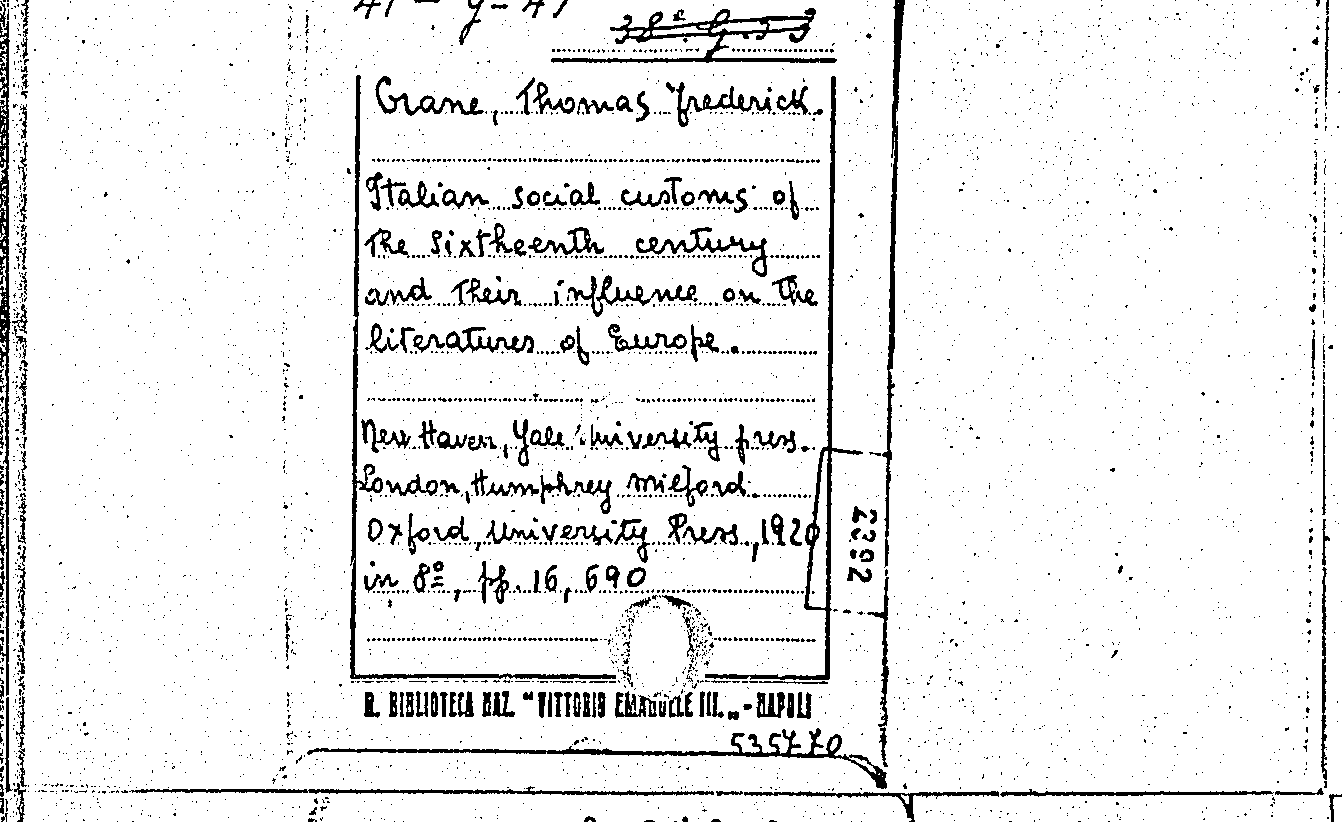 38ª.g.33
Crane, Thomas Frederick.
Italian social customs of
the sixtheenth century
and their influence on the
literatures of Europe.
New Haven, Yale University press.
London, Humphrey Milford.
Oxford, University Press., 1920
in 8º, pp. 16, 690
2392
R. BIBLIOTECA NAZ. "VITTORIO EMANUELE III." - NAPOLI
535770